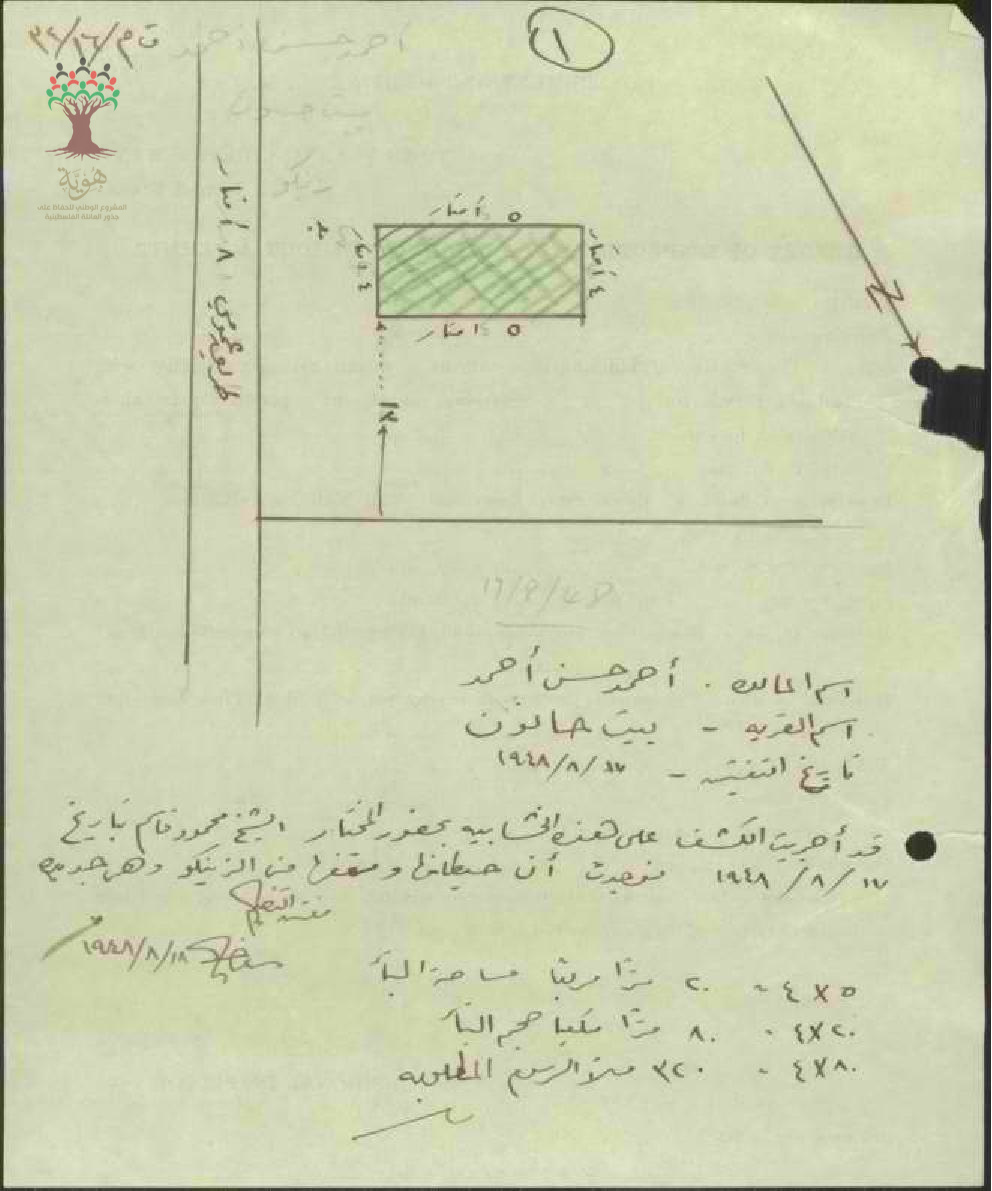 ق م/١٦/٣٢
١
أحمد حسن أحمد
بيت حانون
زينكو
هُويَّة
المشروع الوطني للحفاظ على
جذور العائلة الفلسطينية
٥ أمتار
٤ أمتار
٤ أمتار
٥ أمتار
طريق عمومي ٨ أمتار
١٦/٩/٤٨
اسم المالك . أحمد حسن أحمد
اسم القرية - بيت حانون
تاريخ التفتيش - ١٧/٨/١٩٤٨
قد أجريت الكشف على هذه الخشابيه بحضور المختار الشيخ محمود قاسم بتاريخ
١٧/٨/١٩٤٨ فوجدت أن حيطانها وسقفها من الزينكو وهي جديده
مفتش التنظيم
١٨/٨/١٩٤٨
٥ × ٤ - ٢٠ مترًا مربعًا مساحة البناء
٢٠ × ٤ - ٨٠ مترًا مكعبًا حجم البناء
٨٠ × ٤ - ٣٢٠ ملًا الرسوم المطلوبه